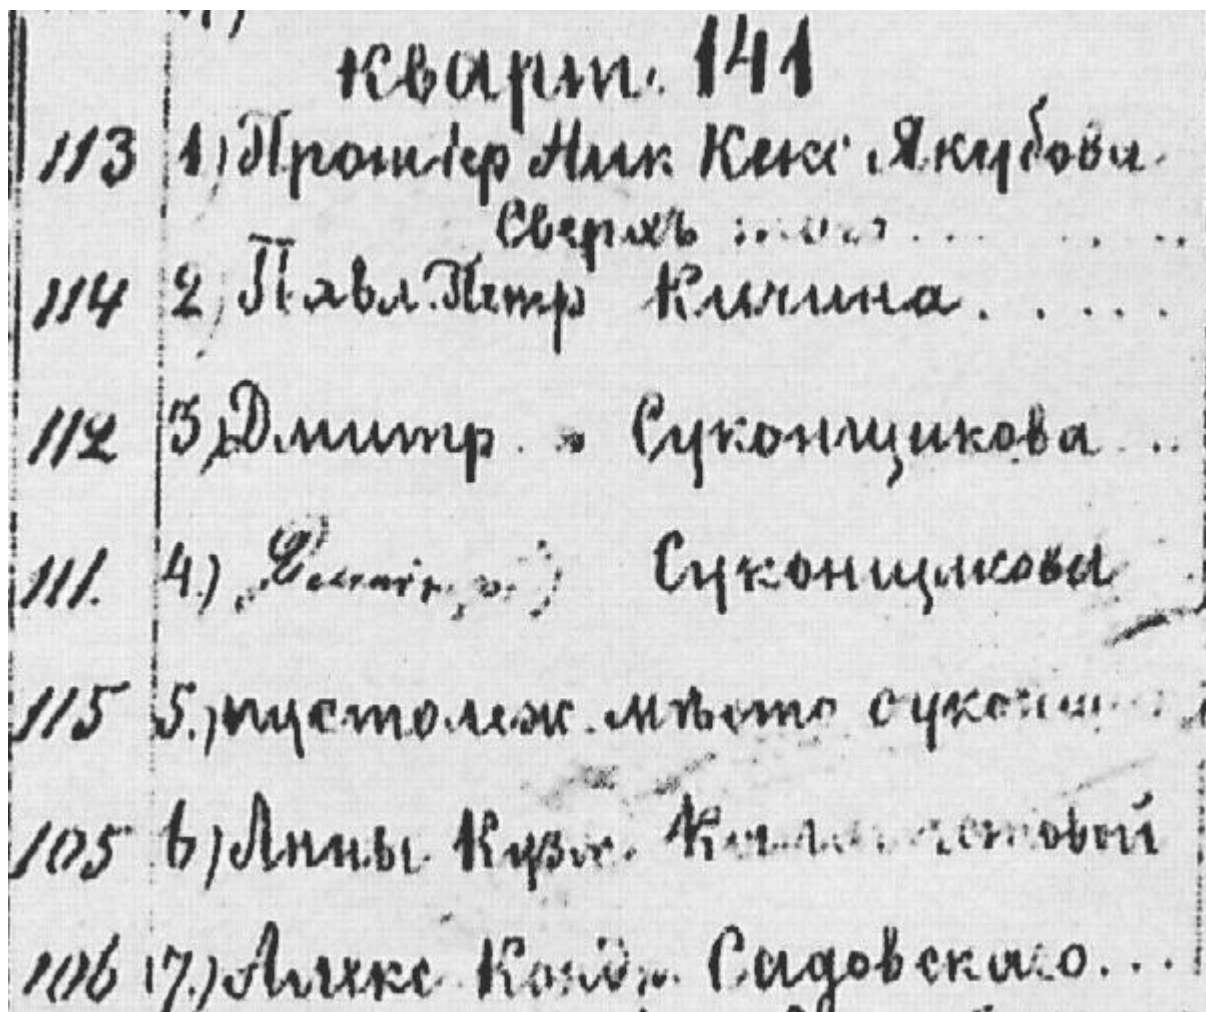 кварт. 141
113 1) Протіер Ник Кекс Якубова
Сверхъ того . . . . . .
114 2) Павл. Петр Кичина . . . . .
112 3) Дмитр. » Суконщикова . .
111. 4.) Суконщикова
115 5.) пустолеж. мѣсто
105 6) Анны Кузм.
106 17.) Алекс Конд. Садовскаго . . .